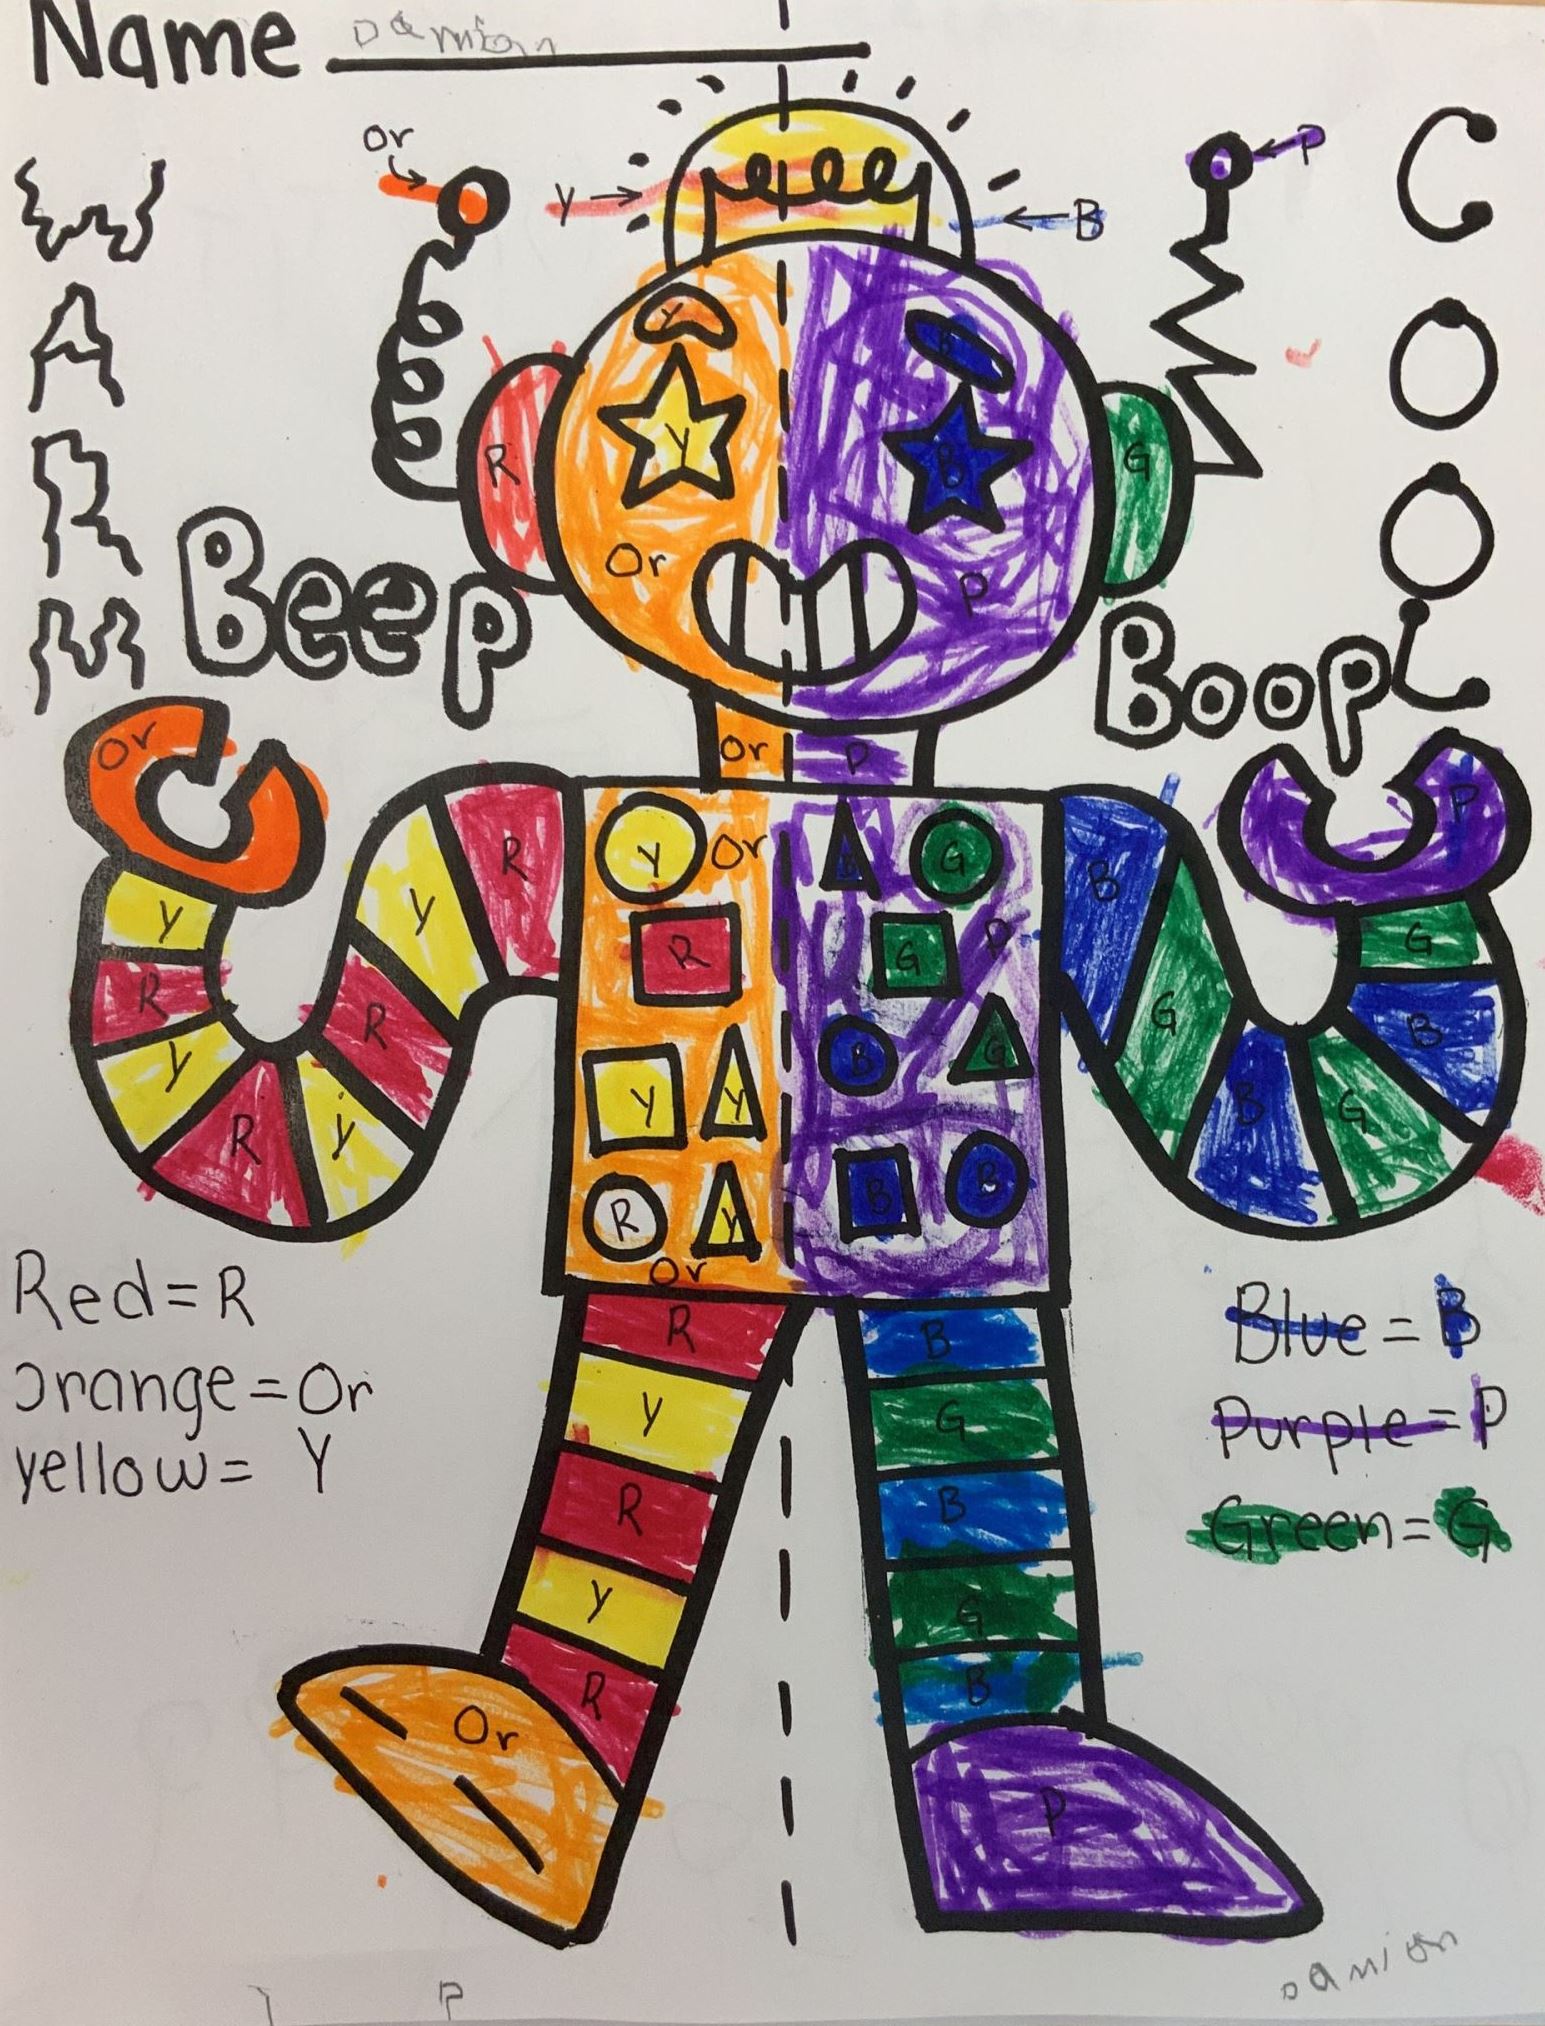 Name Damian
Or
Y
B
P
WARM
COOL
Y
B
R
Y
B
G
Or
P
Beep
Boop
Or
P
Or
P
Y
R
Y
R
Y
R
Y
R
Y
Or
R
Y
Y
R
Y
Or
B
G
G
P
B
G
B
B
B
G
B
G
B
G
R
Y
R
Y
R
Or
B
G
B
G
B
P
Red=R
Orange=Or
yellow= Y
Blue=B
Purple=P
Green=G
Damian